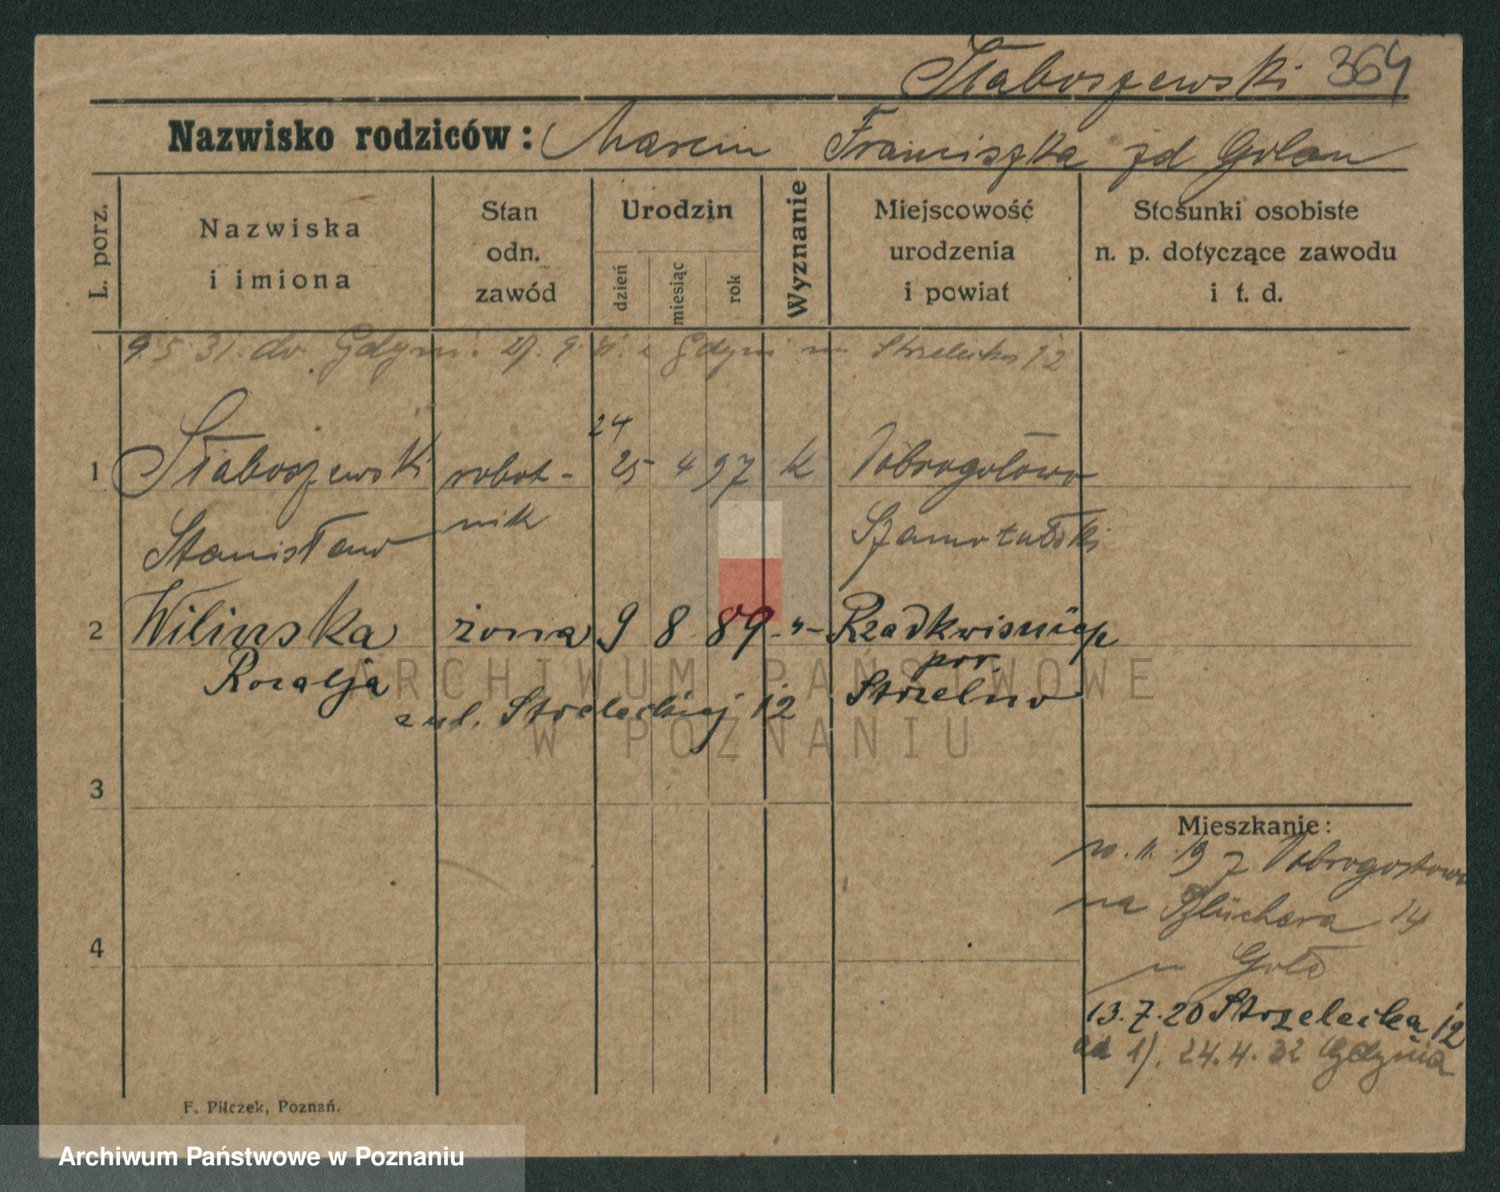 Słaboszewski 364
Nazwisko rodziców: Marcin Franciszka zd Golan
L. porz.
Nazwiska i imiona
Stan odn. zawód
Urodzin
dzień
miesiąc
rok
Wyznanie
Miejscowość urodzenia i powiat
Stosunki osobiste n. p. dotyczące zawodu i t. d.
9.5.31. do Gdyni. 27.9. z Gdyni Strzelecka 12
24
1 Słaboszewski robot- 25 4 97 k
Stanisław nik Szamotulski
2 Wilinska żona 9 8 89 -"- Rzadkwin
Rozalja pow. Strzelno
z ul. Strzeleckiej 12
3
Mieszkanie:
19 z Dobrogostowo
na Blüchera 14
4
13.7.20 Strzelecka 12
ad 1). 24.4.32 Gdynia
F. Pilczek, Poznań.
ARCHIWUM PAŃSTWOWE
W POZNANIU
Archiwum Państwowe w Poznaniu